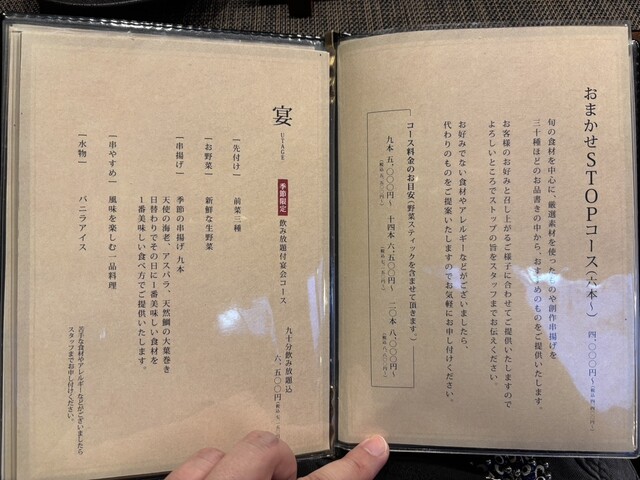 おまかせSTOPコース（六本〜）　四、〇〇〇円〜
旬の食材を中心に、厳選素材を使ったものや創作串揚げを
三十種ほどのお品書きの中から、おすすめのものをご提供いたします。
お客様のお好みと召し上がるご様子に合わせてご提供いたしますので
よろしいところでストップの旨をスタッフまでお伝えください。
お好みでない食材やアレルギーなどがございましたら、
代わりのものをご提案いたしますのでお気軽にお申し付けください。
コース料金のお目安（野菜スティックを含ませて頂きます。）
九本 五、〇〇〇円〜　十四本 六、五〇〇円〜　二〇本 八、〇〇〇円〜
宴 UTAGE
季節限定 飲み放題付宴会コース
九十分飲み放題込
六、五〇〇円
｜先付け｜　前菜三種
｜お野菜｜　新鮮な生野菜
｜串揚げ｜　季節の串揚げ 九本
天使の海老、アスパラ、天然鯛の大葉巻き
日替わりでその日に1番美味しい食材を
1番美味しい食べ方でご提供いたします。
｜串やすめ｜　風味を楽しむ一品料理
｜水物｜　バニラアイス
苦手な食材やアレルギーなどがございましたら
スタッフまでお申し付けください。